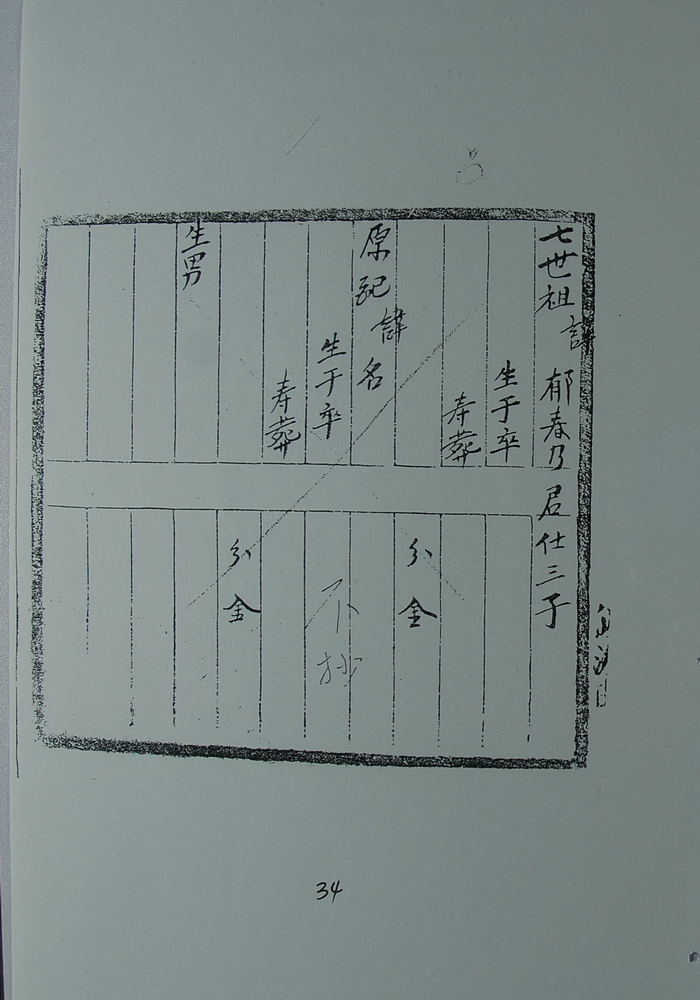 七世祖諱郁春乃君仕三子
生于卒
寿葬
分金
原配諱名
不抄
生于卒
寿葬
分金
生男
34